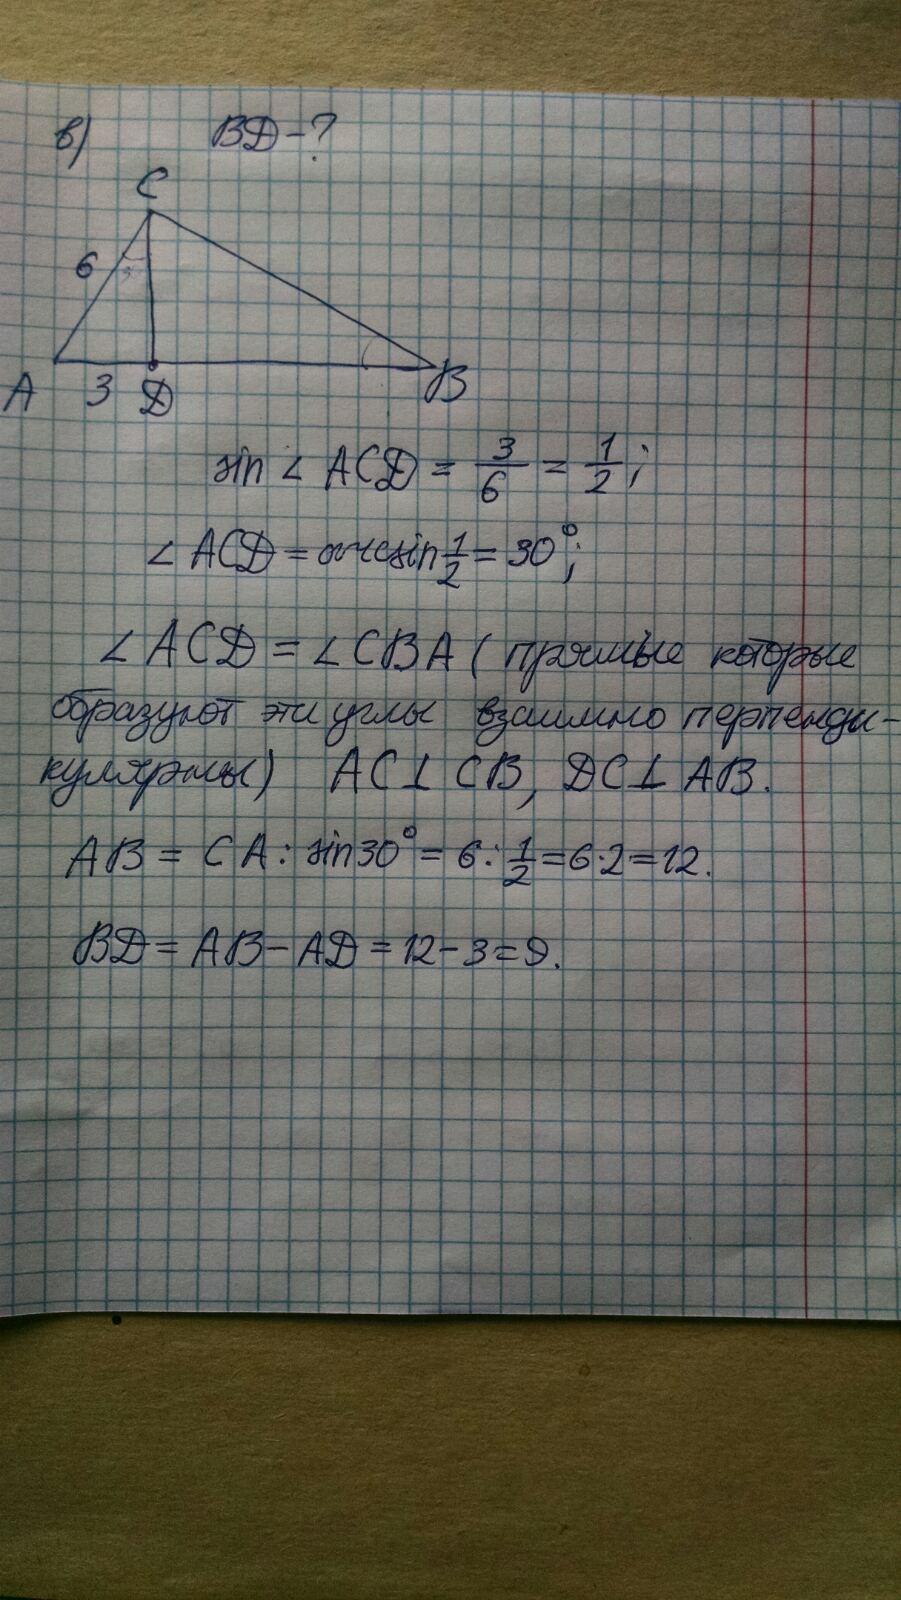 в) BD - ?
C
6
A 3 D B
sin ∠ ACD = 3/6 = 1/2;
∠ ACD = arcsin 1/2 = 30°;
∠ ACD = ∠ CBA (прямые которые
образуют эти углы взаимно перпенди-
кулярны) AC ⊥ CB, DC ⊥ AB.
AB = CA : sin 30° = 6 : 1/2 = 6 · 2 = 12.
BD = AB - AD = 12 - 3 = 9.